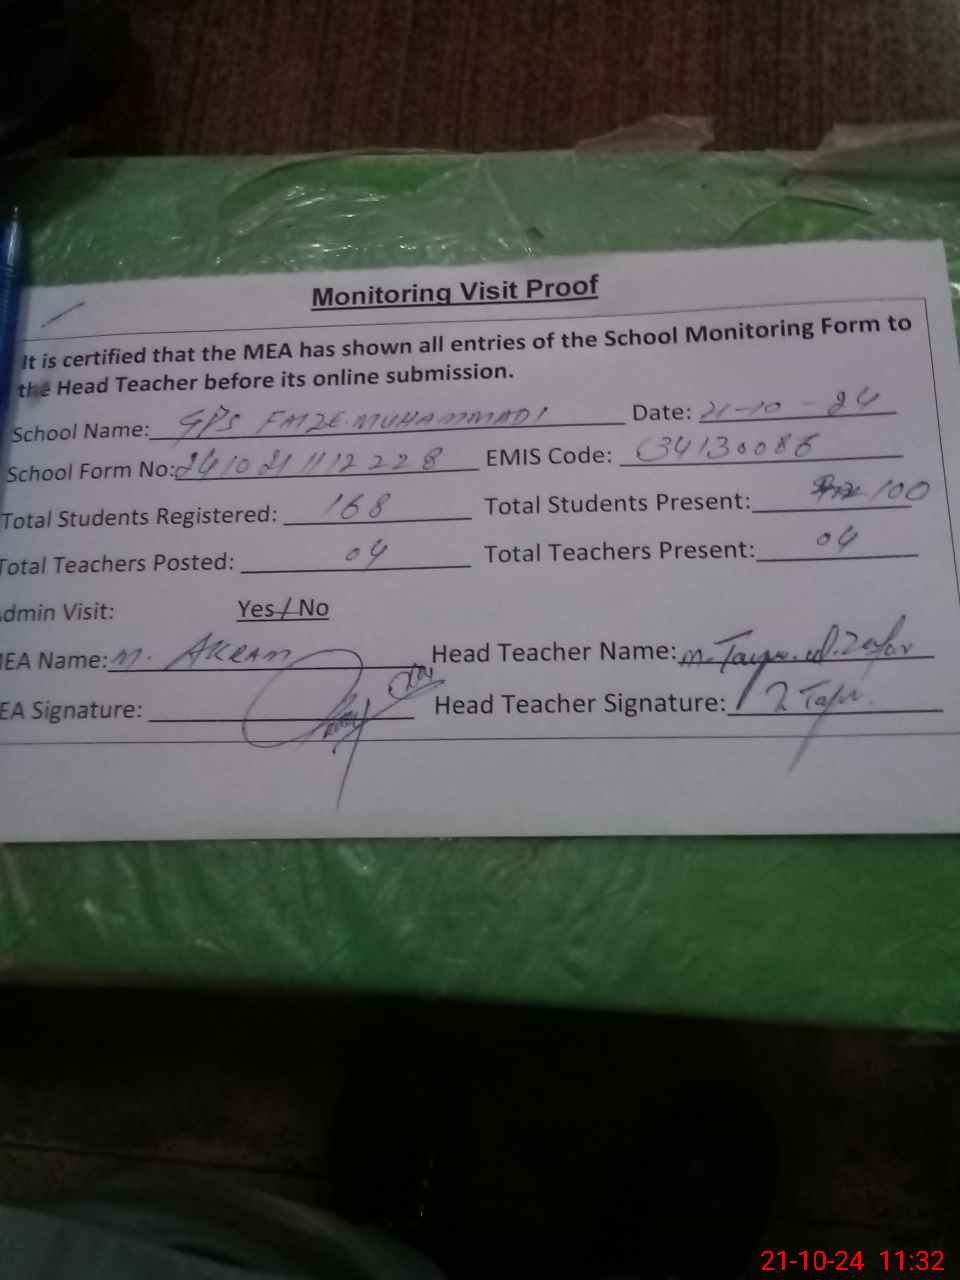 Monitoring Visit Proof
It is certified that the MEA has shown all entries of the School Monitoring Form to
the Head Teacher before its online submission.
School Name: GPS FAIZE.MUHAMMADI Date: 21-10-24
School Form No: 241021112228 EMIS Code: 34130086
Total Students Registered: 168 Total Students Present: 100
Total Teachers Posted: 04 Total Teachers Present: 04
dmin Visit: Yes / No
EA Name: M. AKRAM Head Teacher Name: M.
EA Signature: Head Teacher Signature:
21-10-24 11:32